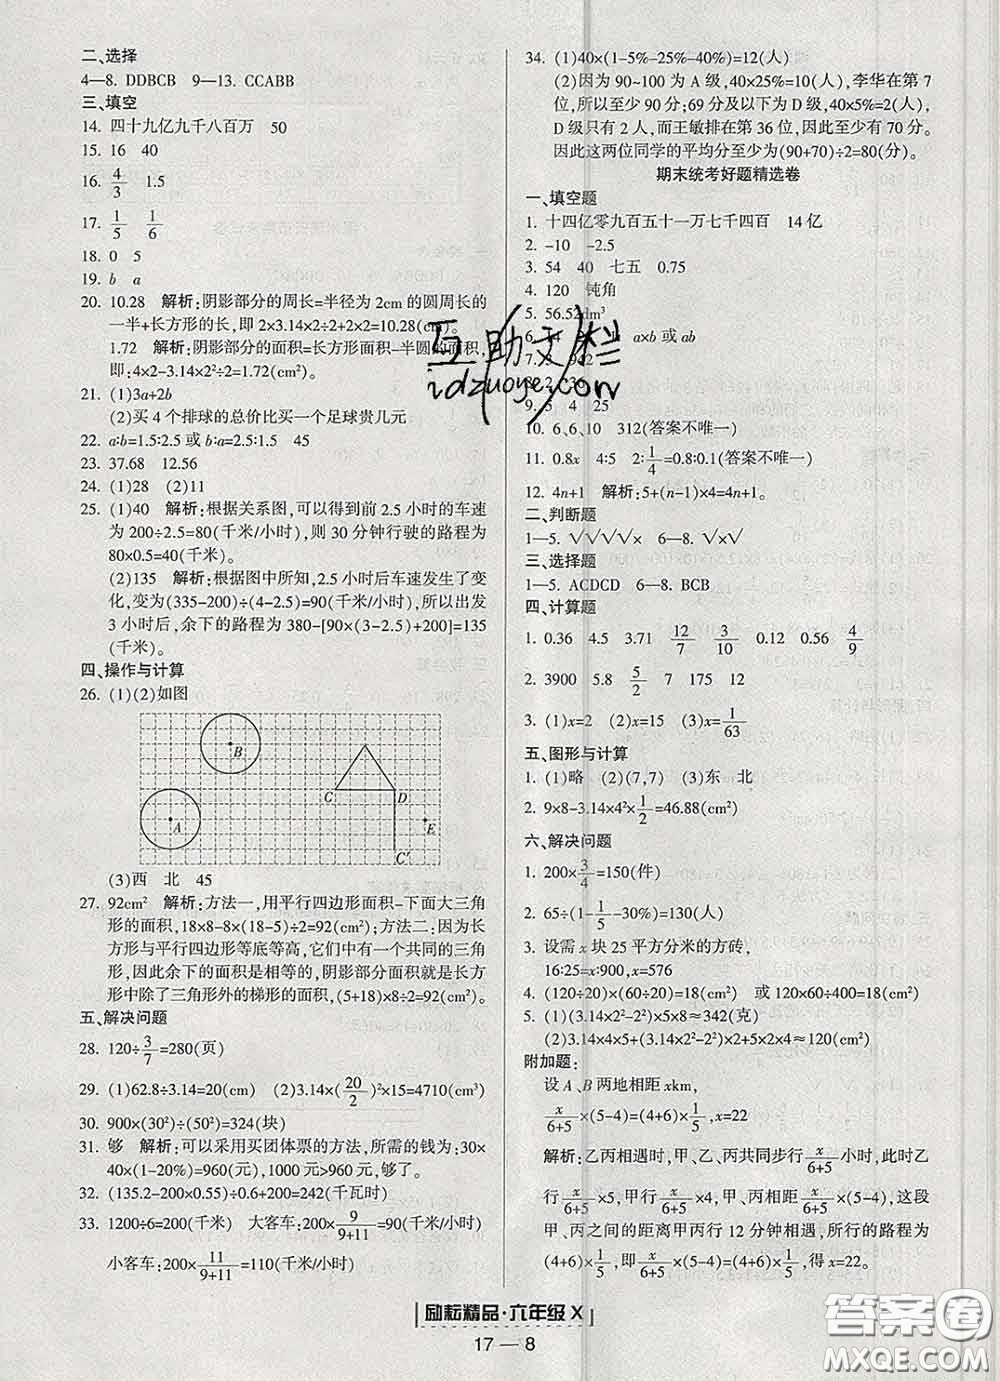 二、选择
4—8. DDBCB 9—13. CCABB
三、填空
14. 四十九亿九千八百万 50
15. 16 40
16. 4/3 1.5
17. 1/5 1/6
18. 0 5
19. b a
20. 10.28 解析:阴影部分的周长=半径为 2cm 的圆周长的
一半+长方形的长,即 2×3.14×2÷2+2×2=10.28(cm)。
1.72 解析:阴影部分的面积=长方形面积-半圆的面积,
即:4×2-3.14×2²÷2=1.72(cm²)。
21. (1)3a+2b
(2)买 4 个排球的总价比买一个足球贵几元
22. a∶b=1.5∶2.5 或 b∶a=2.5∶1.5 45
23. 37.68 12.56
24. (1)28 (2)11
25. (1)40 解析:根据关系图,可以得到前 2.5 小时的车速
为 200÷2.5=80(千米/小时),则 30 分钟行驶的路程为
80×0.5=40(千米)。
(2)135 解析:根据图中所知,2.5 小时后车速发生了变
化,变为(335-200)÷(4-2.5)=90(千米/小时),所以出发
3 小时后,余下的路程为 380-[90×(3-2.5)+200]=135
(千米)。
四、操作与计算
26. (1)(2)如图
B
C D
A E
C′
(3)西 北 45
27. 92cm² 解析:方法一,用平行四边形面积-下面大三角
形的面积,18×8-8×(18-5)÷2=92(cm²);方法二:因为长
方形与平行四边形等底等高,它们中有一个共同的三角
形,因此余下的面积是相等的,阴影部分面积就是长方
形中除了三角形外的梯形的面积,(5+18)×8÷2=92(cm²)。
五、解决问题
28. 120÷3/7=280(页)
29. (1)62.8÷3.14=20(cm) (2)3.14×(20/2)²×15=4710(cm³)
30. 900×(30²)÷(50²)=324(块)
31. 够 解析:可以采用买团体票的方法,所需的钱为:30×
40×(1-20%)=960(元),1000 元>960 元,够了。
32. (135.2-200×0.55)÷0.6+200=242(千瓦时)
33. 1200÷6=200(千米) 大客车:200×9/(9+11)=90(千米/小时)
小客车:200×11/(9+11)=110(千米/小时)
34. (1)40×(1-5%-25%-40%)=12(人)
(2)因为 90~100 为 A 级,40×25%=10(人),李华在第 7
位,所以至少 90 分;69 分及以下为 D 级,40×5%=2(人),
D 级只有 2 人,而王敏排在第 36 位,因此至少有 70 分。
因此这两位同学的平均分至少为(90+70)÷2=80(分)。
期末统考好题精选卷
一、填空题
1. 十四亿零九百五十一万七千四百 14 亿
2. -10 -2.5
3. 54 40 七五 0.75
4. 120 钝角
5. 56.52dm³
6. a×b 或 ab
7.
8. 2 36
9. 5 4 25
10. 6、6、10 312(答案不唯一)
11. 0.8x 4∶5 2∶1/4=0.8∶0.1(答案不唯一)
12. 4n+1 解析:5+(n-1)×4=4n+1。
二、判断题
1—5. √√√√× 6—8. √×√
三、选择题
1—5. ACDCD 6—8. BCB
四、计算题
1. 0.36 4.5 3.71 12/7 3/10 0.12 0.56 4/9
2. 3900 5.8 5/2 7 175 12
3. (1)x=2 (2)x=15 (3)x=1/63
五、图形与计算
1. (1)略 (2)(7,7) (3)东 北
2. 9×8-3.14×4²×1/2=46.88(cm²)
六、解决问题
1. 200×3/4=150(件)
2. 65÷(1-1/5-30%)=130(人)
3. 设需 x 块 25 平方分米的方砖,
16∶25=x∶900,x=576
4. (120÷20)×(60÷20)=18(cm²) 或 120×60÷400=18(cm²)
5. (1)(3.14×2²-2²)×5×8≈342(克)
(2)3.14×4×5+(3.14×2²-2²)×2+5×2×4≈120(cm²)
附加题:
设 A、B 两地相距 xkm,
x/(6+5)×(5-4)=(4+6)×1/5,x=22
解析:乙丙相遇时,甲、乙、丙共同步行x/(6+5)小时,此时乙
行x/(6+5)×5,丙行x/(6+5)×4,甲、丙相距x/(6+5)×(5-4),这段
甲、丙之间的距离甲丙行 12 分钟相遇,所行的路程为
(4+6)×1/5,即x/(6+5)×(5-4)=(4+6)×1/5,得 x=22。
励耘精品·六年级 X
17 — 8
互助文栏
idzuoye.com
答案圈
MXQE.COM